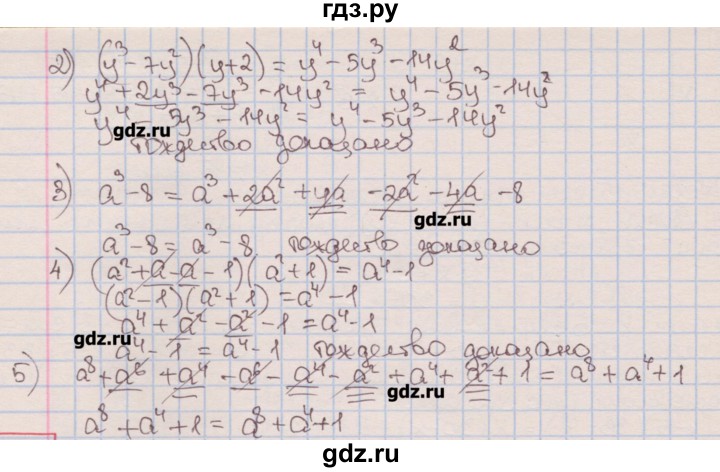 гдз.ру
2) (y³ - 7y²)(y+2) = y⁴ - 5y³ - 14y²
y⁴ + 2y³ - 7y³ - 14y² = y⁴ - 5y³ - 14y²
y⁴ - 5y³ - 14y² = y⁴ - 5y³ - 14y²
gdz.ru
тождество доказано
3) a³ - 8 = a³ + 2a² + 4a - 2a² - 4a - 8
gdz.ru
a³ - 8 = a³ - 8 тождество доказано
4) (a² + a - a - 1)(a² + 1) = a⁴ - 1
(a² - 1)(a² + 1) = a⁴ - 1
a⁴ + a² - a² - 1 = a⁴ - 1
gdz.ru
a⁴ - 1 = a⁴ - 1 тождество доказано
5) a⁸ + a⁶ + a⁴ - a⁶ - a⁴ - a² + a⁴ + a² + 1 = a⁸ + a⁴ + 1
gdz.ru
a⁸ + a⁴ + 1 = a⁸ + a⁴ + 1
gdz.ru